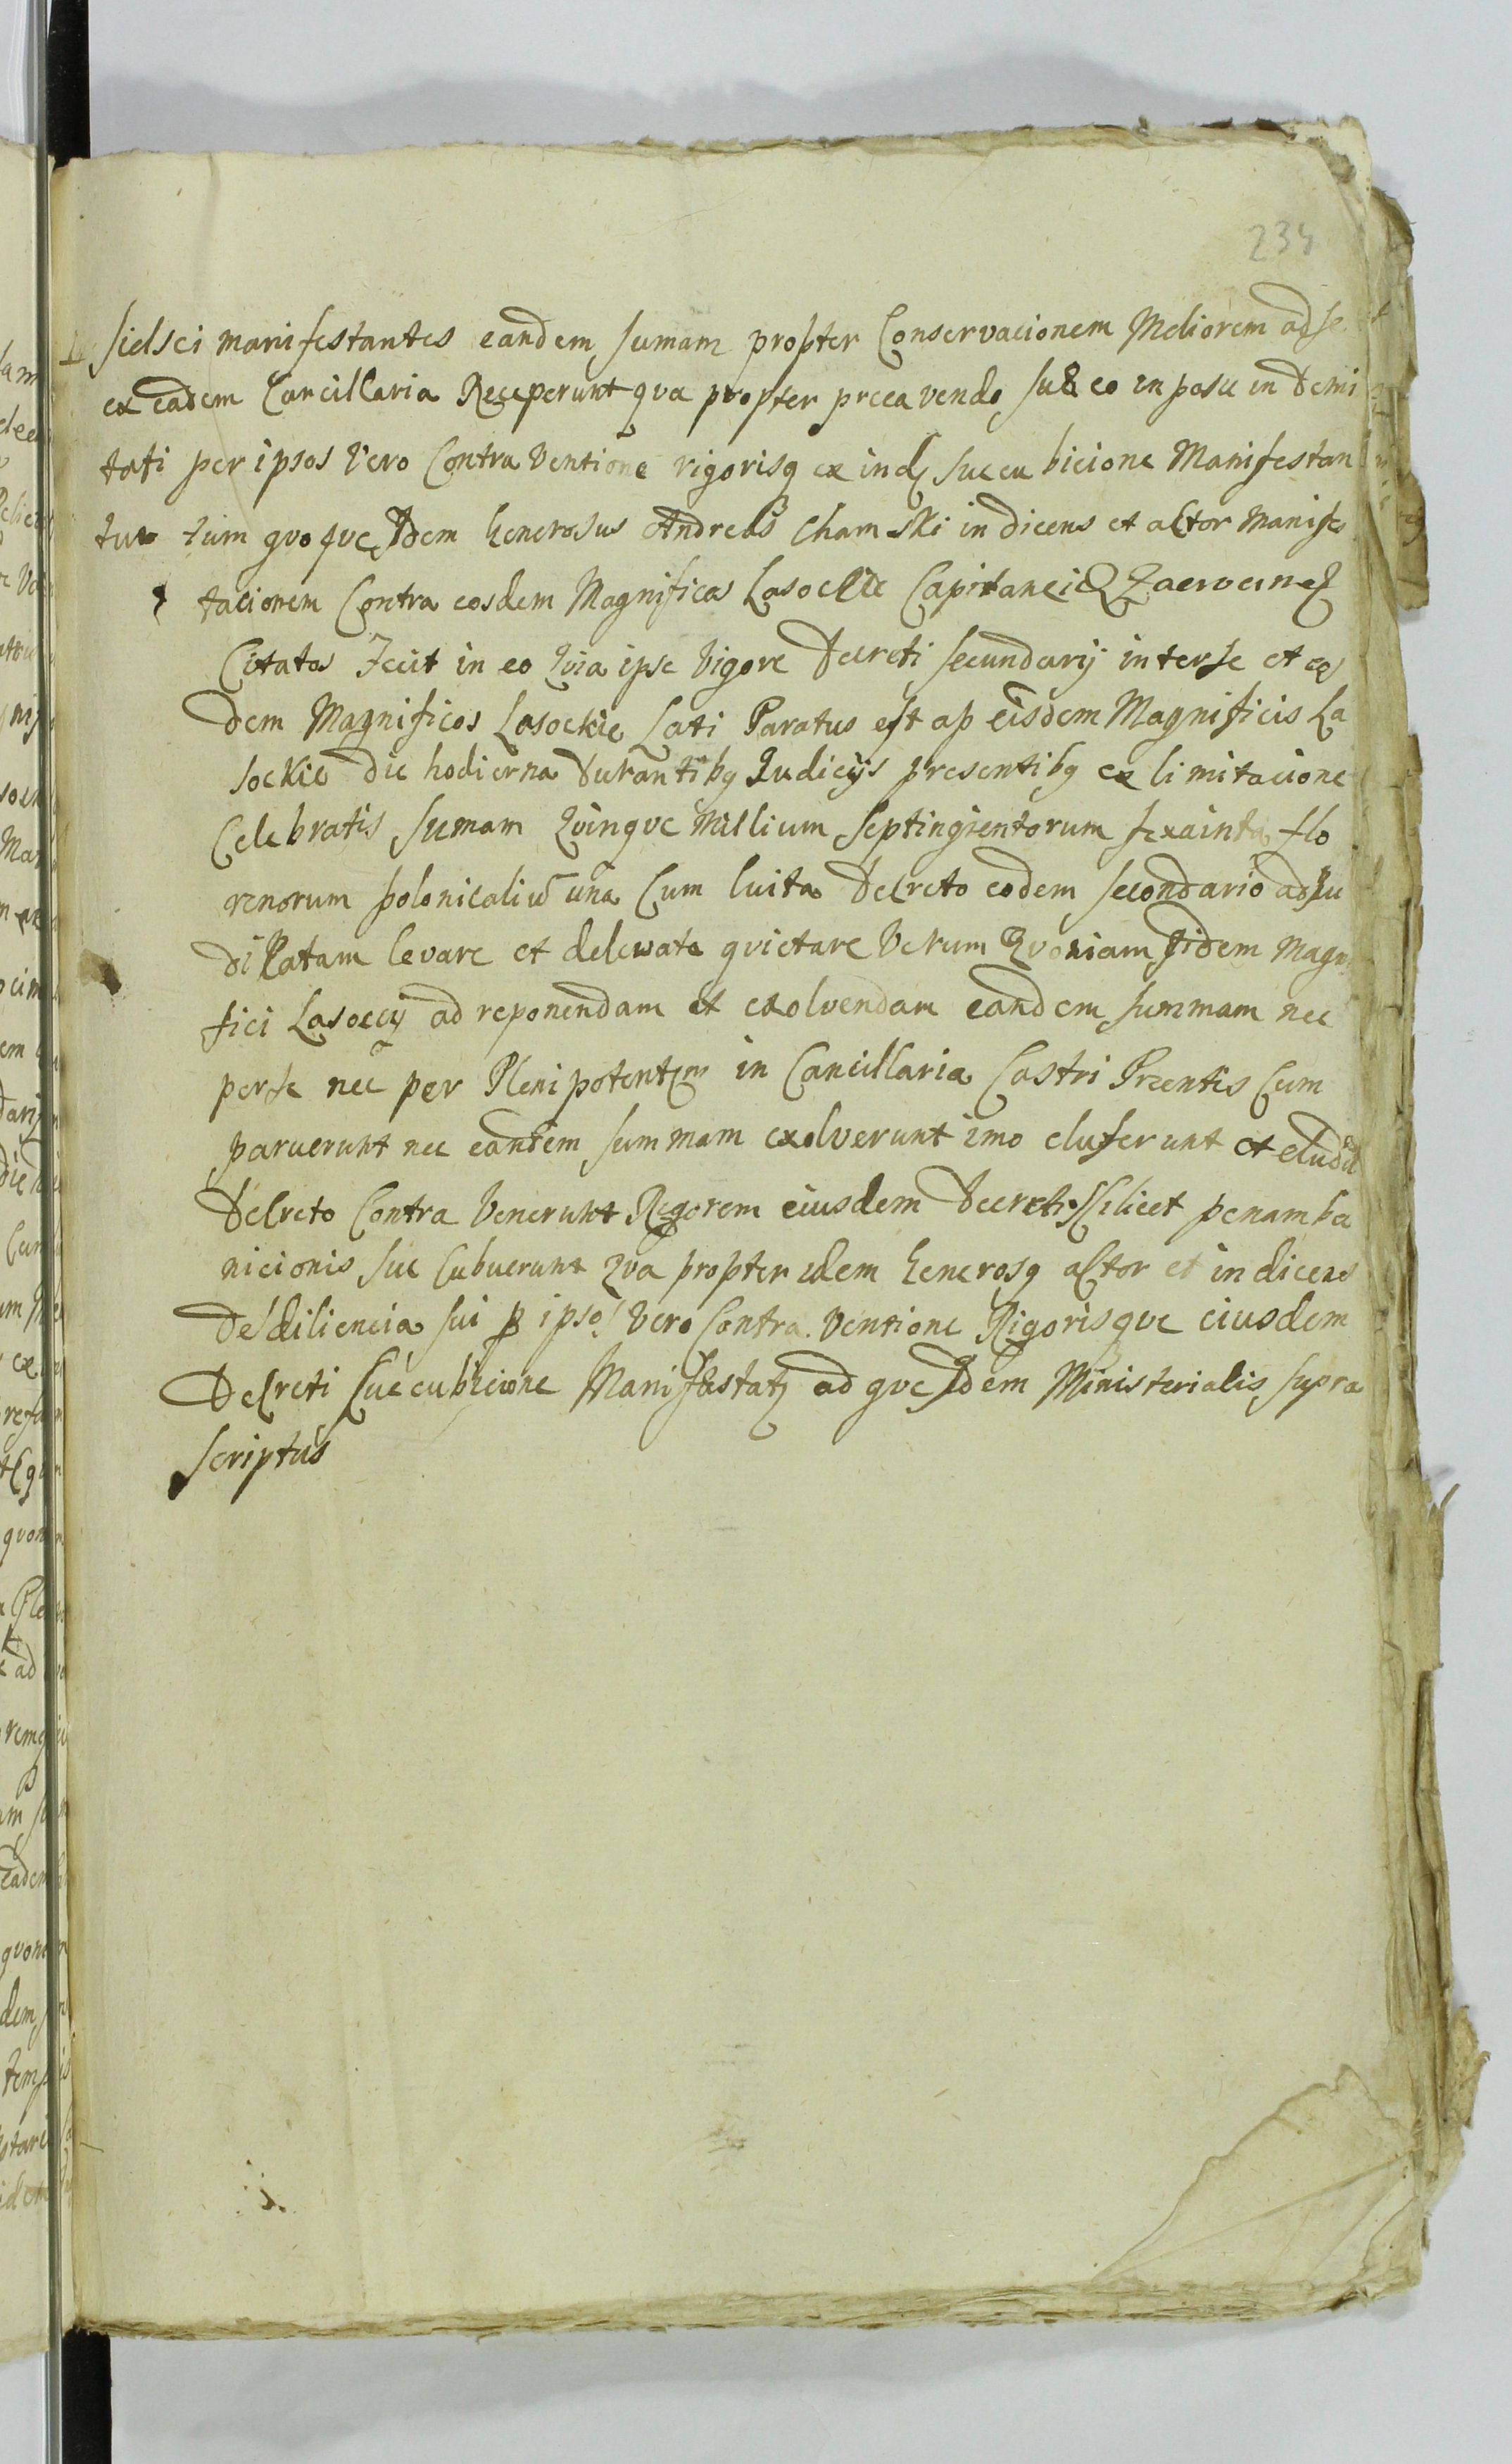 234
sielsci manifestantes eandem sumam propter Conservacionem Meliorem adse
ex eadem Cancillaria Receperunt qva propter preca vendo sub eo in posu in demi
tati per ipsos vero Contra Ventione rigorisq ex ind succu bicione Manifestan
tur tum qvo qve Idem Generosus Andreas Chamski in dicens et actor Manifes
tacionem Contra eosdem Magnificos Lasockie Capitaneid
Citatos Fecit in eo Qvia ipse Vigore Decreti secundarij interse et eos
dem Magnificos Lasockie Lati Paratus est ap eisdem Magnificis La
sockie die hodierna Durantibq Iudicijs presentibq ex limitacione
Celebratis sumam Qvinqve Millium septingientorum sexainta flo
renorum polonicaliu una Cum luita Decreto eodem secondario adiu
dikatam levare et delewata qvietare Verum Qvoniam Iidem Magni
fici Lasoccij ad reponendam et exolvendam eandem summam nec
perse nec per Plenipotentem in Cancillaria Castri Prcentis Com
paruerunt nec eandem summam exolverunt imo eluserunt et eludit
Decreto Contra Venerunt Rigorem eiusdem Decreti Scilicet penam ba
nicionis suc Cubuerunt Qva propter idem Generosq actor et in dicens
De diliencia sui p ipso! Vero Contra. Ventione Rigoris qve eiusdem
Decreti Succubicione Manifestatq ad qve Idem Ministerialis supra
scriptus